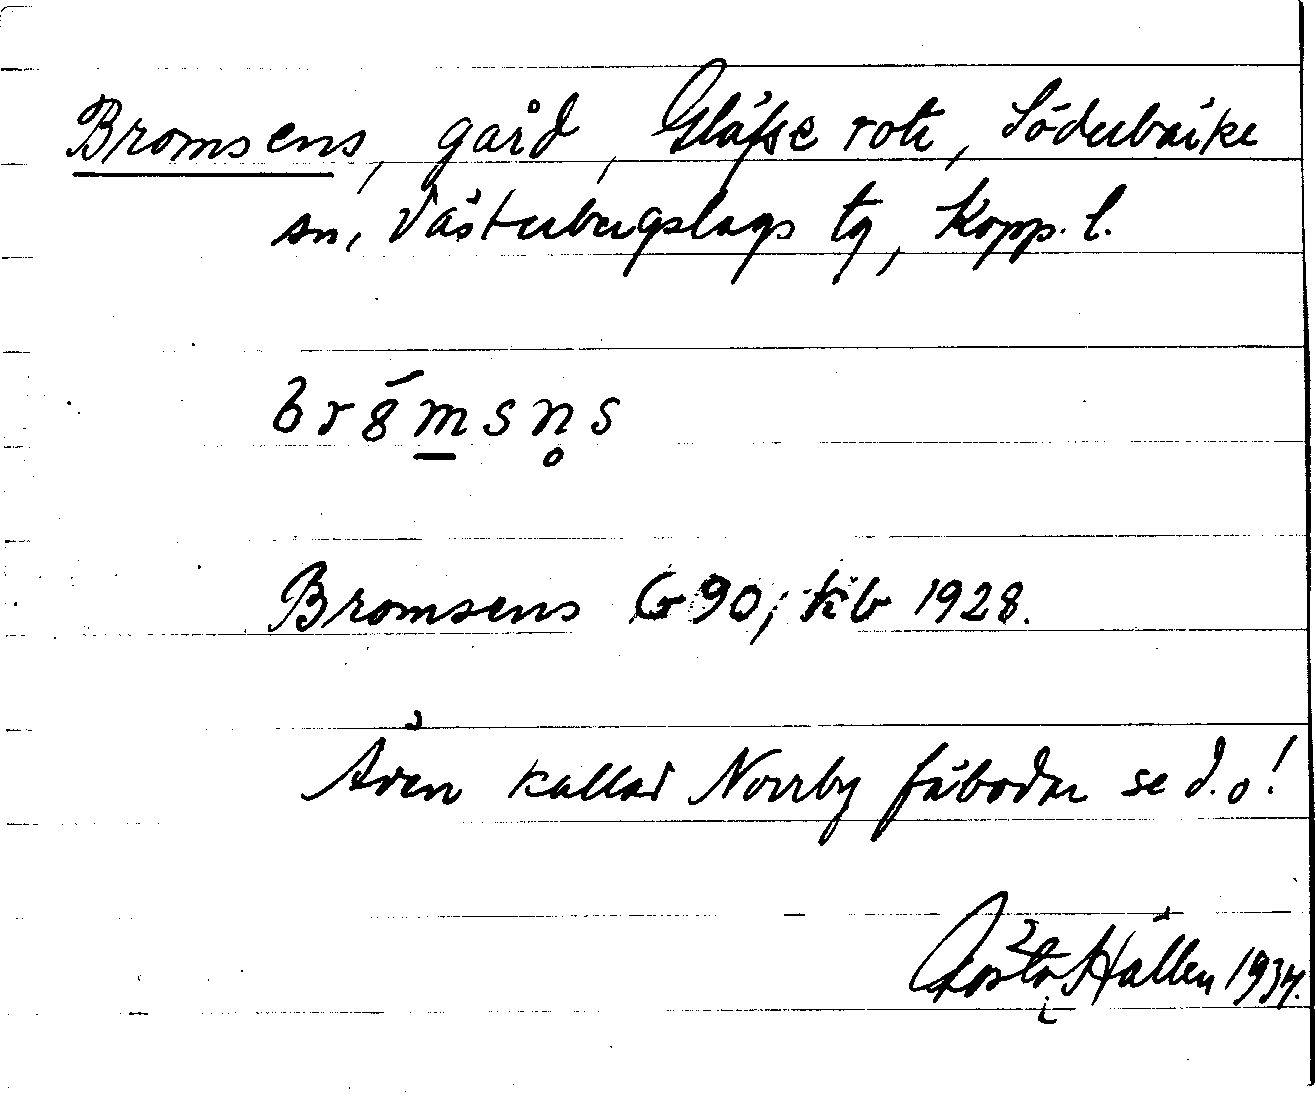 Bromsens, gård, Gläfse rote, Söderbärke
sn, Västerbergslags tg, Kopp. l.
br8́msn̥s
Bromsens G 90; kb 1928.
Även kallad Norrby fäbodar se d.o!
Gösta Hällen 1934.